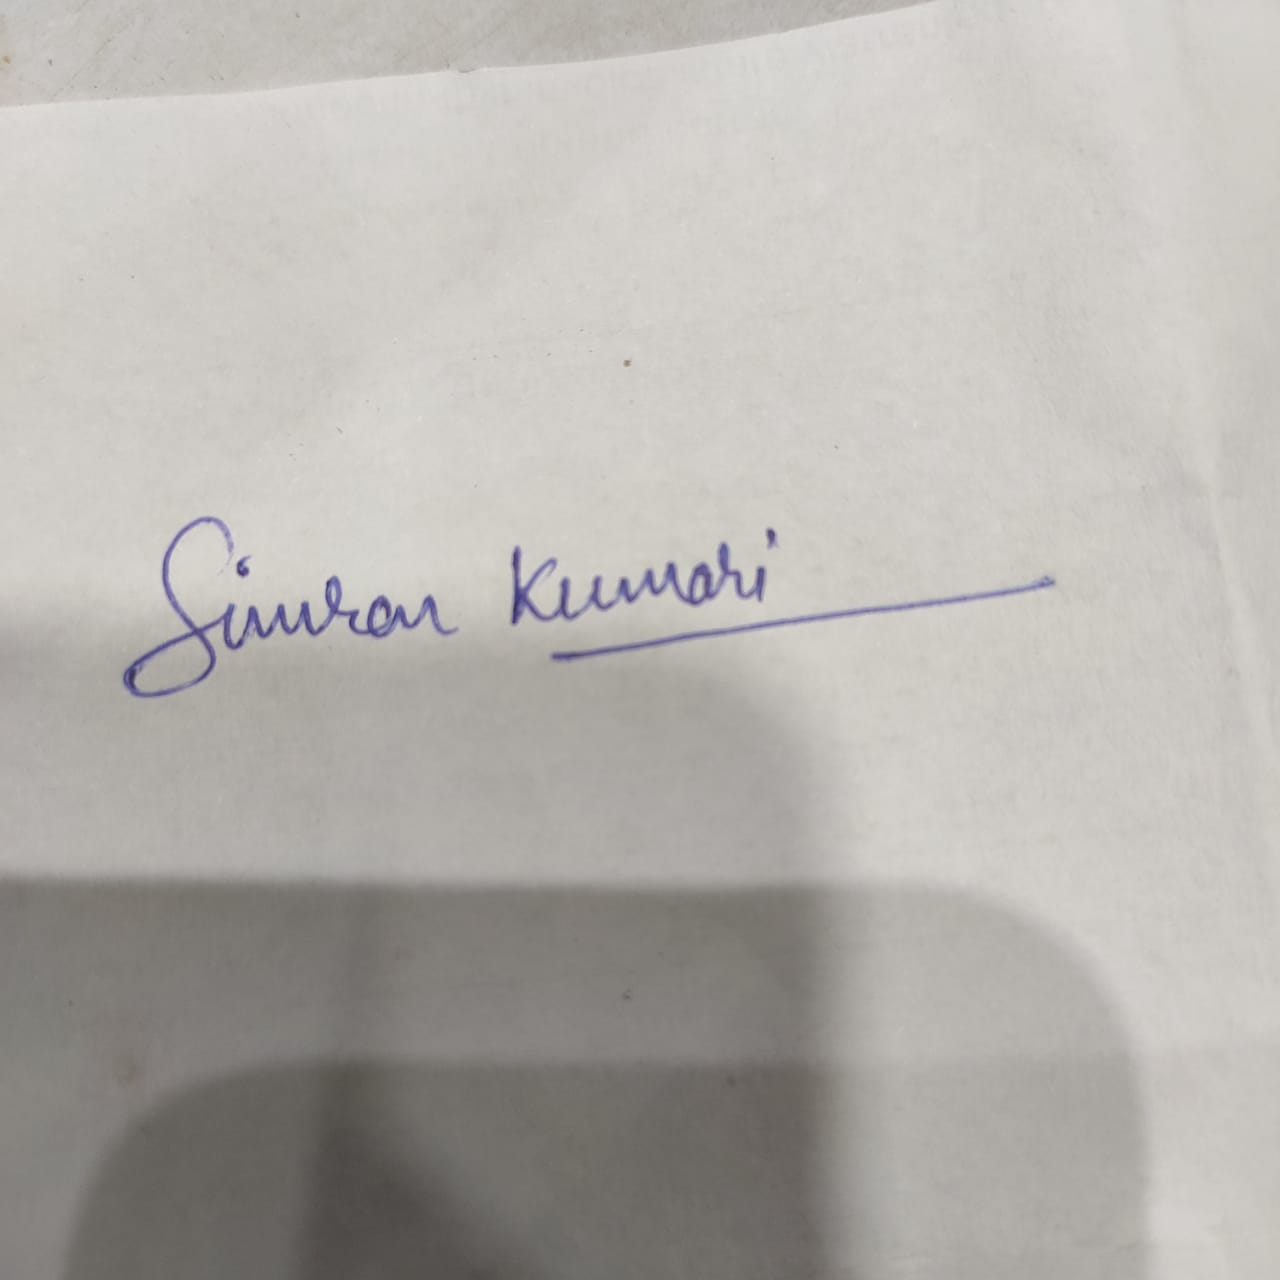 Simran Kumari